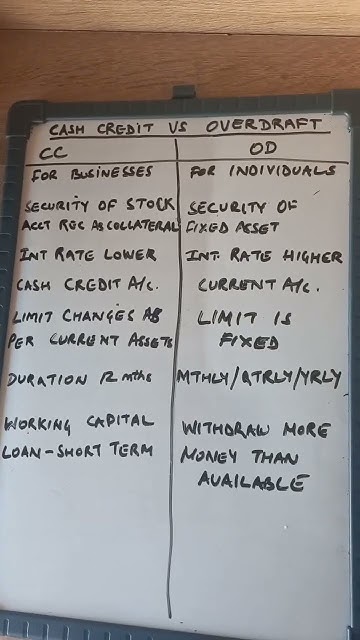 CASH CREDIT VS OVERDRAFT
CC
FOR BUSINESSES
SECURITY OF STOCK
ACCT REC AS COLLATERAL
INT RATE LOWER
CASH CREDIT A/C.
LIMIT CHANGES AS
PER CURRENT ASSETS
DURATION 12 mths
WORKING CAPITAL
LOAN-SHORT TERM
OD
FOR INDIVIDUALS
SECURITY OF
FIXED ASSET
INT. RATE HIGHER
CURRENT A/C.
LIMIT IS
FIXED
MTHLY/QTRLY/YRLY
WITHDRAW MORE
MONEY THAN
AVAILABLE